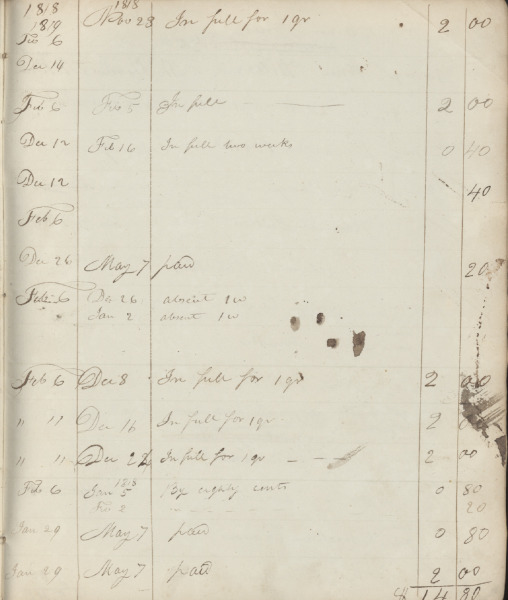 1818 1818
1819 Nov 28 In full for 1 qr 2 00
Feb 6
Dec 14
Feb 6 Feb 5 In full 2 00
Dec 12 Feb 16 In full two weeks 0 40
Dec 12 40
Feb 6
Dec 26 May 7 paid 20
Feb 6 Dec 26 absent 1 w
Jan 2 absent 1 w
Feb 6 Dec 8 In full for 1 qr 2 00
" " Dec 16 In full for 1 qr 2
" " Dec 26 In full for 1 qr 2 00
1818
Feb 6 Jan 5 By eighty cents 0 80
Feb 2 20
Jan 29 May 7 paid 0 80
Jan 29 May 7 paid 2 00
$ 14 80